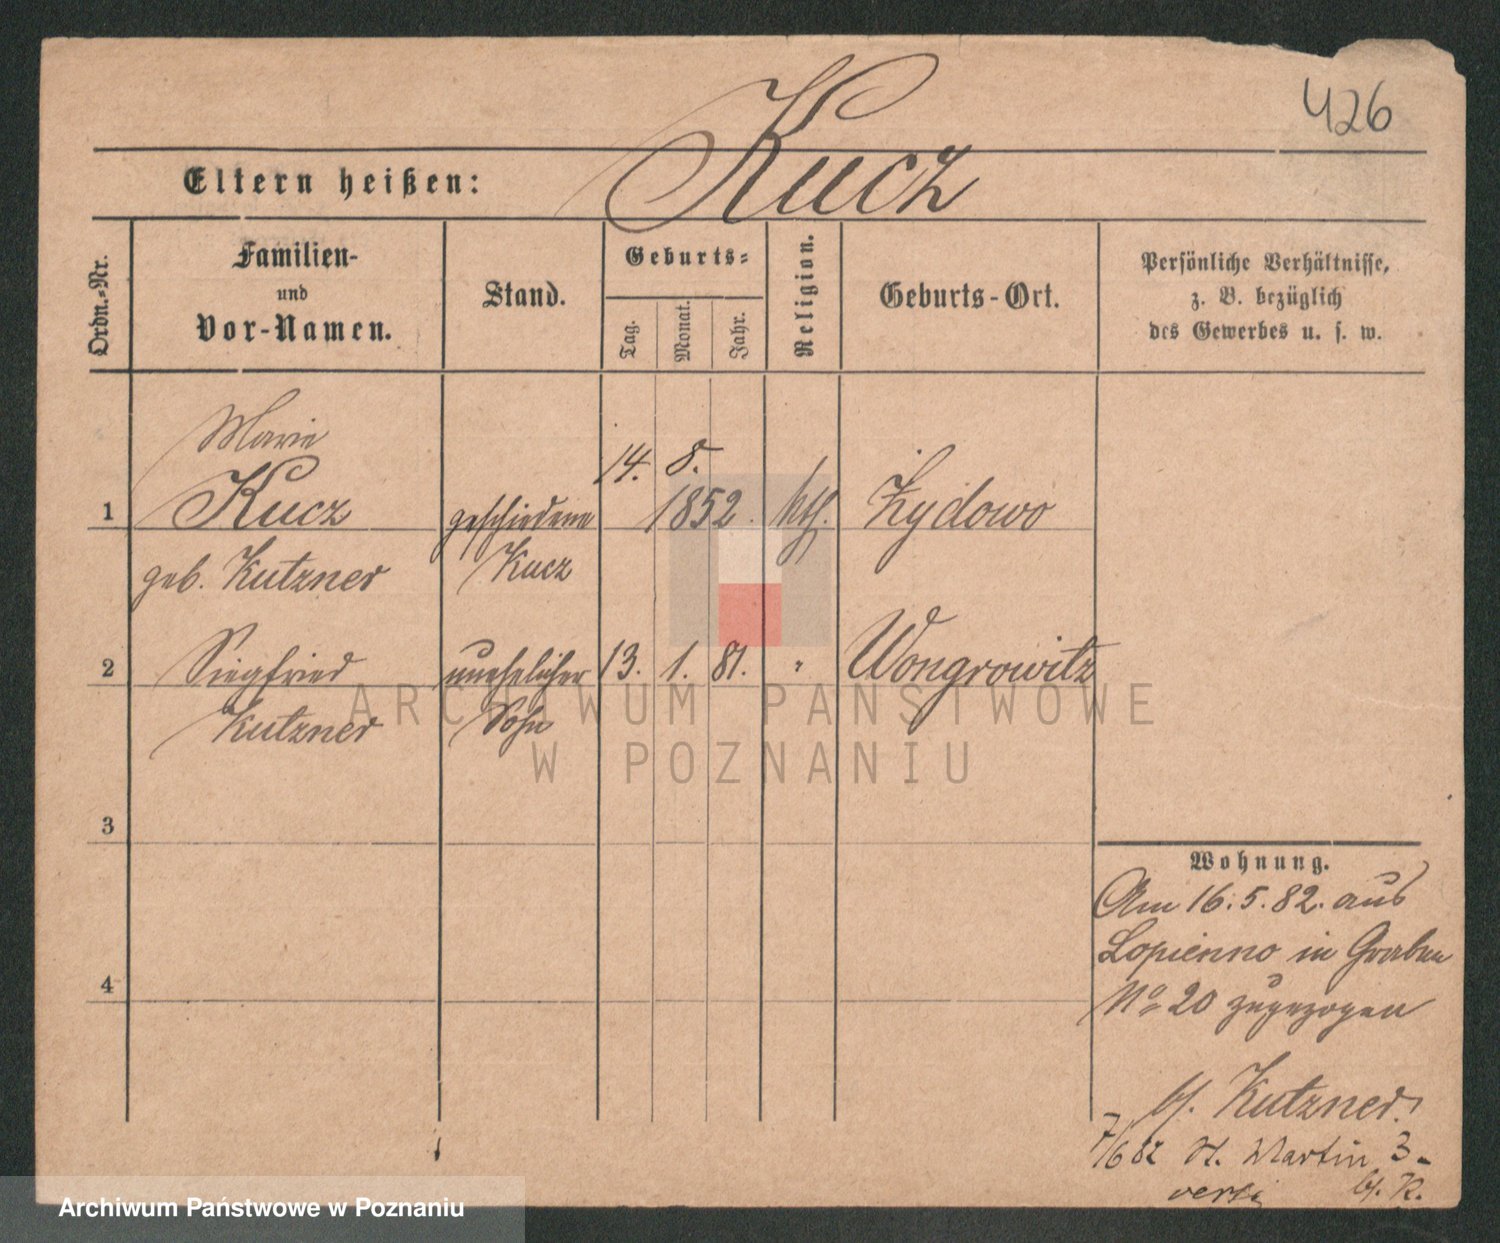 426
Kucz
Eltern heißen:
Ordn.-Nr.
Familien-
und
Vor-Namen.
Stand.
Geburts-
Tag.
Monat.
Jahr.
Religion.
Geburts-Ort.
Persönliche Verhältnisse,
z. B. bezüglich
des Gewerbes u. s. w.
Marie
1 Kucz geschiedene 14. 8. 1852. kth. Żydowo
geb. Kutzner Kucz
2 Siegfried unehelicher 13. 1. 81. " Wongrowitz
Kutzner Sohn
3
4
Wohnung.
Am 16.5.82. aus
Lopienno in Graben
No 20 zugezogen
b/. Kutzner.
7/6 82 St. Martin 3-
b/. K.
ARCHIWUM PAŃSTWOWE
W POZNANIU
Archiwum Państwowe w Poznaniu